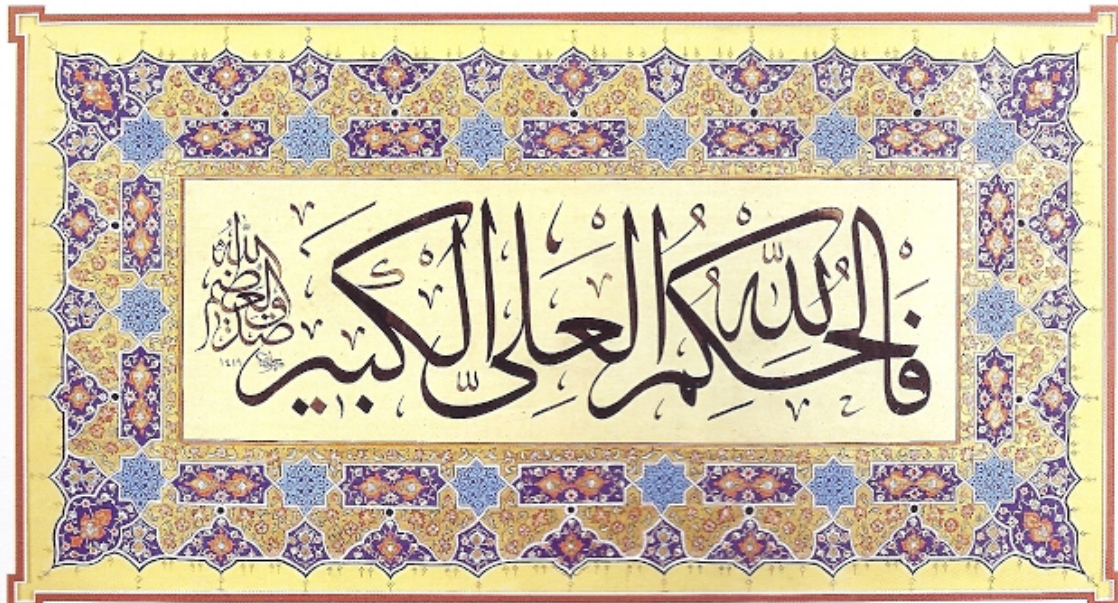 فَالْحُكْمُ لِلّٰهِ الْعَلِيِّ الْكَبِيرِ
صدق الله العظيم
١٤١٩